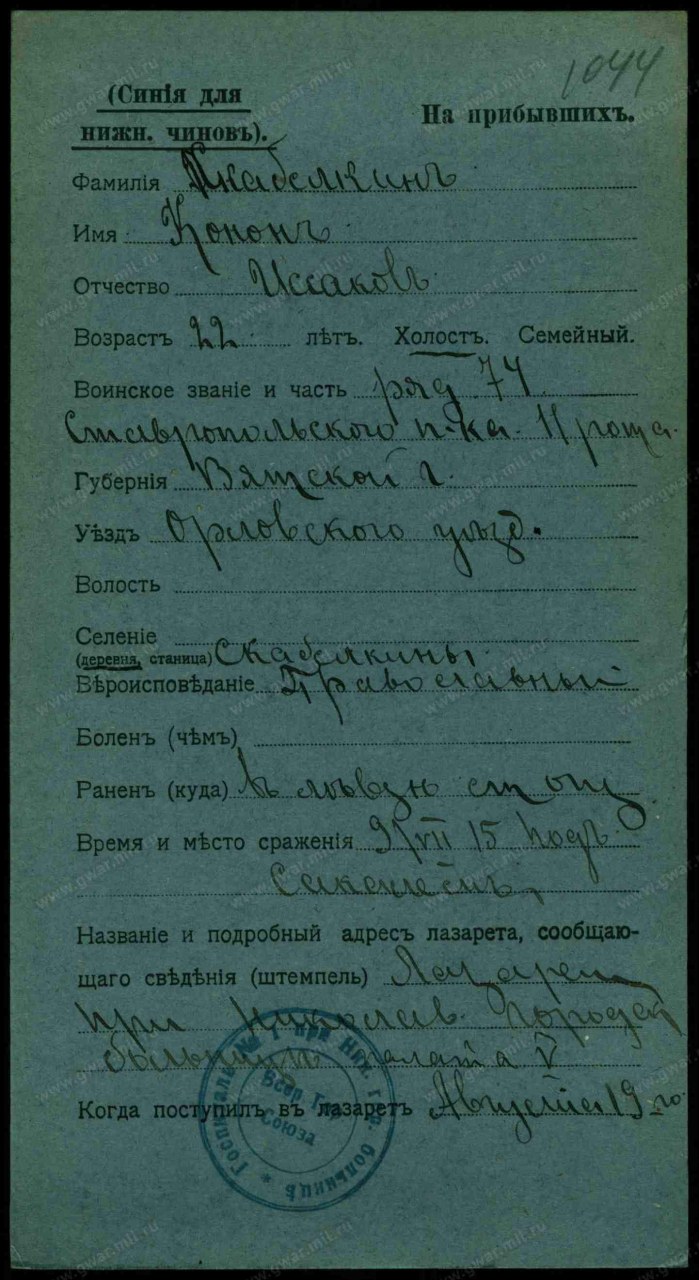 1044
(Синія для
нижн. чиновъ).
На прибывшихъ.
Фамилія Скабелкинъ
Имя Кононъ
Отчество Иссаковъ
Возрастъ 22 лѣтъ. Холостъ. Семейный.
Воинское званіе и часть ряд 74
Ставропольского п-ка. 11 рота.
Губернія Вятской г.
Уѣздъ Орловского уѣзд.
Волость
Селеніе
(деревня, станица) Скабелкины
Вѣроисповѣданіе Православный
Боленъ (чѣмъ)
Раненъ (куда) въ лѣвую стопу
Время и мѣсто сраженія 9/VII 15 подъ
Названіе и подробный адресъ лазарета, сообщаю-
щаго свѣдѣнія (штемпель) Лазарет
при Николаев. городск
больницѣ палата V
Когда поступилъ въ лазаретъ Августа 19-го
Госпиталь № 1 при Ник. гор. больницѣ
Всер. Гор.
Союза
www.gwar.mil.ru